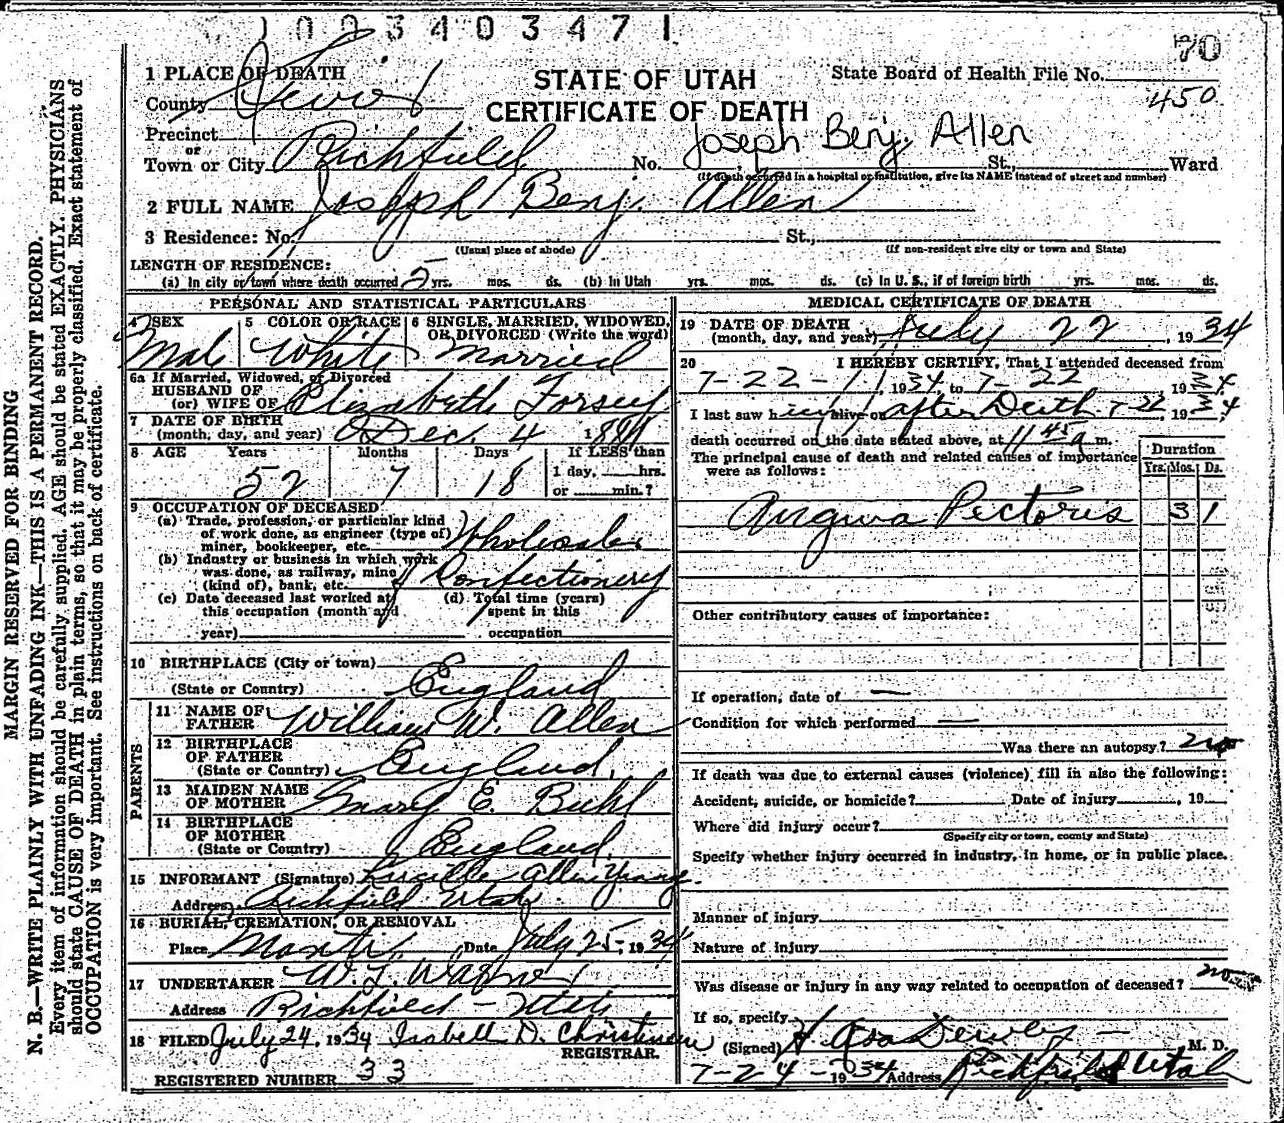 1003403471
70
1 PLACE OF DEATH
STATE OF UTAH
State Board of Health File No.
450
County Sevier
CERTIFICATE OF DEATH
Precinct
or
Joseph Benj. Allen
Town or City Richfield No. St., Ward
(If death occurred in a hospital or institution, give its NAME instead of street and number)
2 FULL NAME Joseph Benj. Allen
3 Residence: No. St.,
(Usual place of abode) (If non-resident give city or town and State)
LENGTH OF RESIDENCE:
(a) In city or town where death occurred 5 yrs. mos. ds. (b) In Utah yrs. mos. ds. (c) In U. S., if of foreign birth yrs. mos. ds.
PERSONAL AND STATISTICAL PARTICULARS
4 SEX Male
5 COLOR OR RACE White
6 SINGLE, MARRIED, WIDOWED, OR DIVORCED (Write the word) Married
6a If Married, Widowed, or Divorced
HUSBAND OF
(or) WIFE OF Elizabeth Forsey
7 DATE OF BIRTH
(month, day, and year) Dec. 4 1881
8 AGE Years Months Days If LESS than
1 day, hrs.
52 7 18 or min.?
9 OCCUPATION OF DECEASED
(a) Trade, profession, or particular kind
of work done, as engineer (type of)
miner, bookkeeper, etc. Wholesaler
(b) Industry or business in which work
was done, as railway, mine
(kind of), bank, etc. Confectionery
(c) Date deceased last worked at
this occupation (month and
year)
(d) Total time (years)
spent in this
occupation
10 BIRTHPLACE (City or town)
(State or Country) England
PARENTS
11 NAME OF
FATHER William W. Allen
12 BIRTHPLACE
OF FATHER
(State or Country) England
13 MAIDEN NAME
OF MOTHER Mary E. Buhl
14 BIRTHPLACE
OF MOTHER
(State or Country) England
15 INFORMANT (Signature) Allen
Address Richfield Utah
16 BURIAL, CREMATION, OR REMOVAL
Place Manti, Date July 25, 1934
17 UNDERTAKER W. L. Wagner
Address Richfield - Utah
18 FILED July 24, 1934 Isabell D. Christensen
REGISTRAR.
REGISTERED NUMBER 33
MEDICAL CERTIFICATE OF DEATH
19 DATE OF DEATH
(month, day, and year) July 22, 1934
20 I HEREBY CERTIFY, That I attended deceased from
7-22-, 1934 to 7-22, 1934
I last saw h alive on after Death 7-22 1934
death occurred on the date stated above, at 11 45 a m.
The principal cause of death and related causes of importance
were as follows:
Duration
Yrs. Mos. Ds.
Angina Pectoris 3 1
Other contributory causes of importance:
If operation, date of —
Condition for which performed —
Was there an autopsy? no
If death was due to external causes (violence) fill in also the following:
Accident, suicide, or homicide? Date of injury, 19
Where did injury occur?
(Specify city or town, county and State)
Specify whether injury occurred in industry, in home, or in public place.
Manner of injury
Nature of injury
Was disease or injury in any way related to occupation of deceased? no
If so, specify
(Signed) Asa Dewey — M. D.
7-24-1934 Address Richfield Utah
MARGIN RESERVED FOR BINDING
N. B.—WRITE PLAINLY WITH UNFADING INK—THIS IS A PERMANENT RECORD.
Every item of information should be carefully supplied. AGE should be stated EXACTLY. PHYSICIANS
should state CAUSE OF DEATH in plain terms, so that it may be properly classified. Exact statement of
OCCUPATION is very important. See instructions on back of certificate.